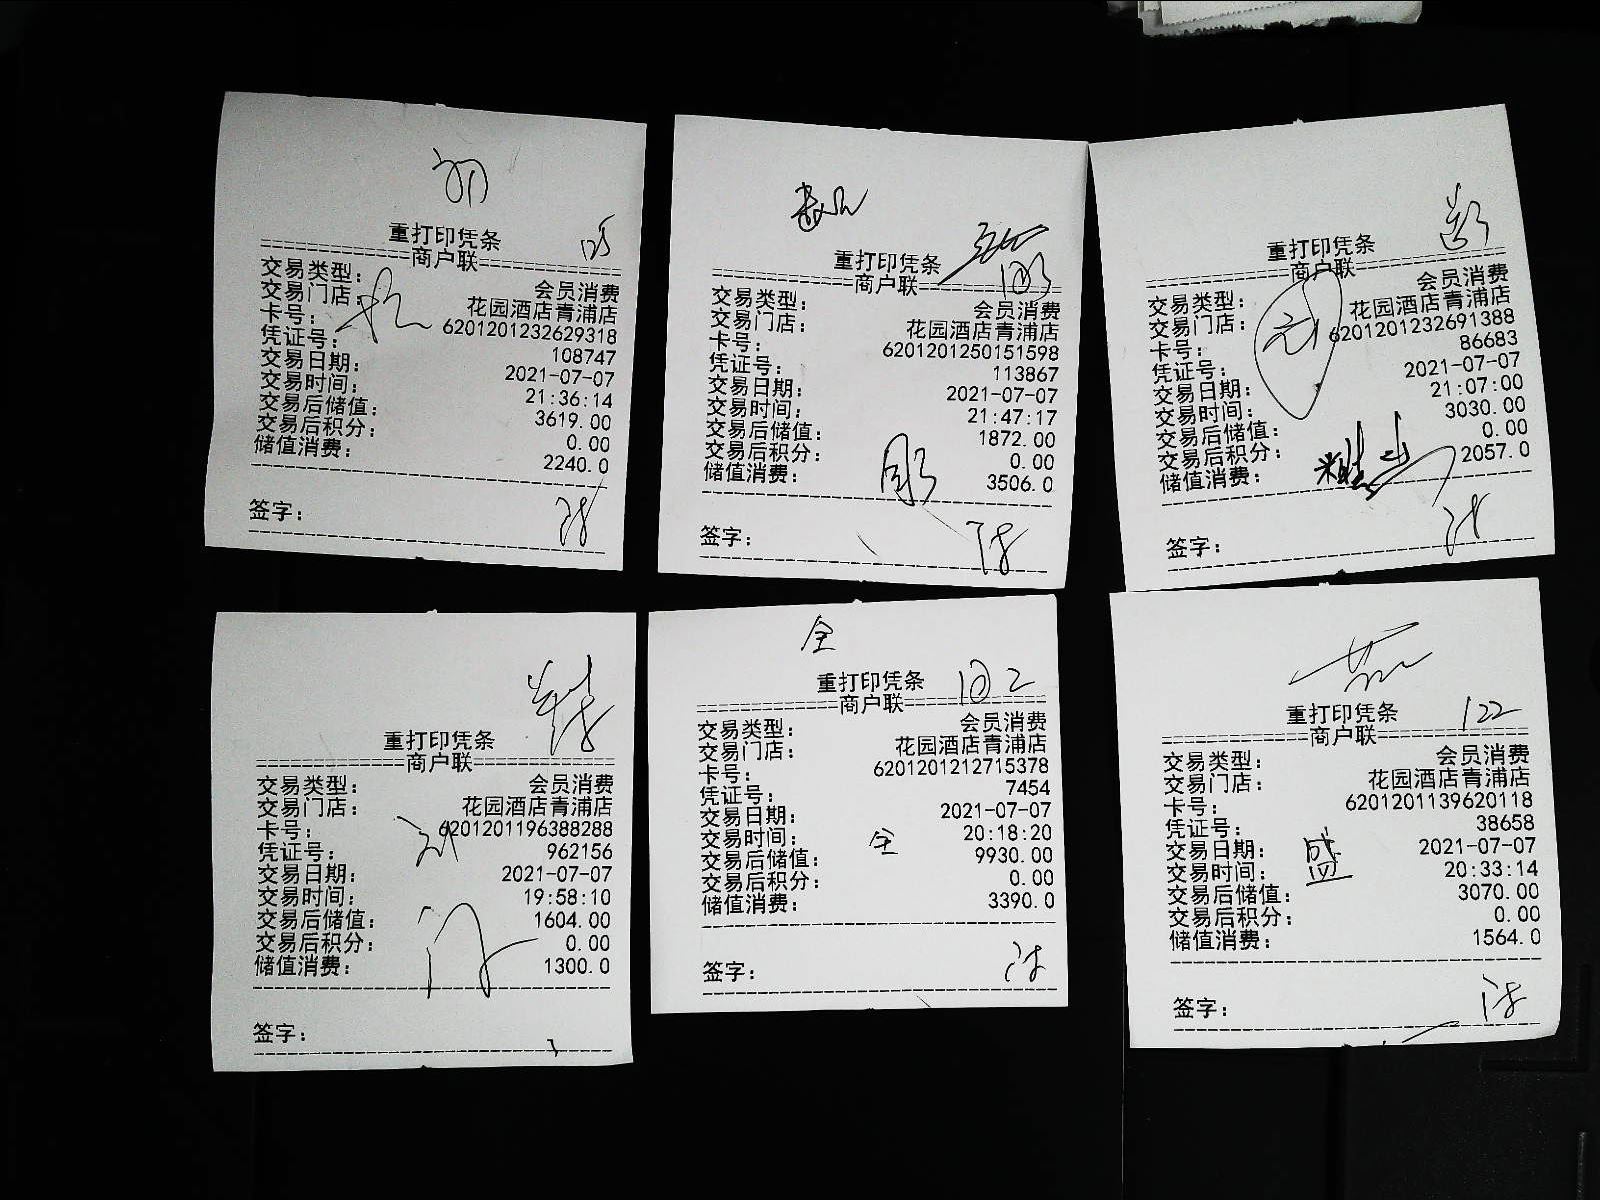 重打印凭条
商户联
交易类型： 会员消费
交易门店： 花园酒店青浦店
卡号： 6201201232629318
凭证号： 108747
交易日期： 2021-07-07
交易时间： 21:36:14
交易后储值： 3619.00
交易后积分： 0.00
储值消费： 2240.0
签字：
重打印凭条
商户联
交易类型： 会员消费
交易门店： 花园酒店青浦店
卡号： 6201201250151598
凭证号： 113867
交易日期： 2021-07-07
交易时间： 21:47:17
交易后储值： 1872.00
交易后积分： 0.00
储值消费： 3506.0
签字：
重打印凭条
商户联
交易类型： 会员消费
交易门店： 花园酒店青浦店
卡号： 6201201232691388
凭证号： 86683
交易日期： 2021-07-07
交易时间： 21:07:00
交易后储值： 3030.00
交易后积分： 0.00
储值消费： 2057.0
签字：
重打印凭条
商户联
交易类型： 会员消费
交易门店： 花园酒店青浦店
卡号： 6201201196388288
凭证号： 962156
交易日期： 2021-07-07
交易时间： 19:58:10
交易后储值： 1604.00
交易后积分： 0.00
储值消费： 1300.0
签字：
全
重打印凭条 102
商户联
交易类型： 会员消费
交易门店： 花园酒店青浦店
卡号： 6201201212715378
凭证号： 7454
交易日期： 2021-07-07
交易时间： 全 20:18:20
交易后储值： 9930.00
交易后积分： 0.00
储值消费： 3390.0
签字：
重打印凭条 122
商户联
交易类型： 会员消费
交易门店： 花园酒店青浦店
卡号： 6201201139620118
凭证号： 38658
交易日期： 2021-07-07
交易时间： 盛 20:33:14
交易后储值： 3070.00
交易后积分： 0.00
储值消费： 1564.0
签字：